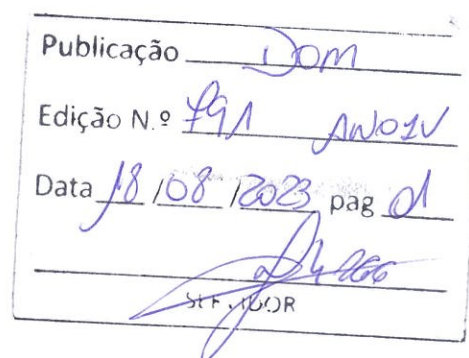 Publicação DOM
Edição N.º 791 ANO IV
Data 18/08/2023 pag 01
SERVIDOR